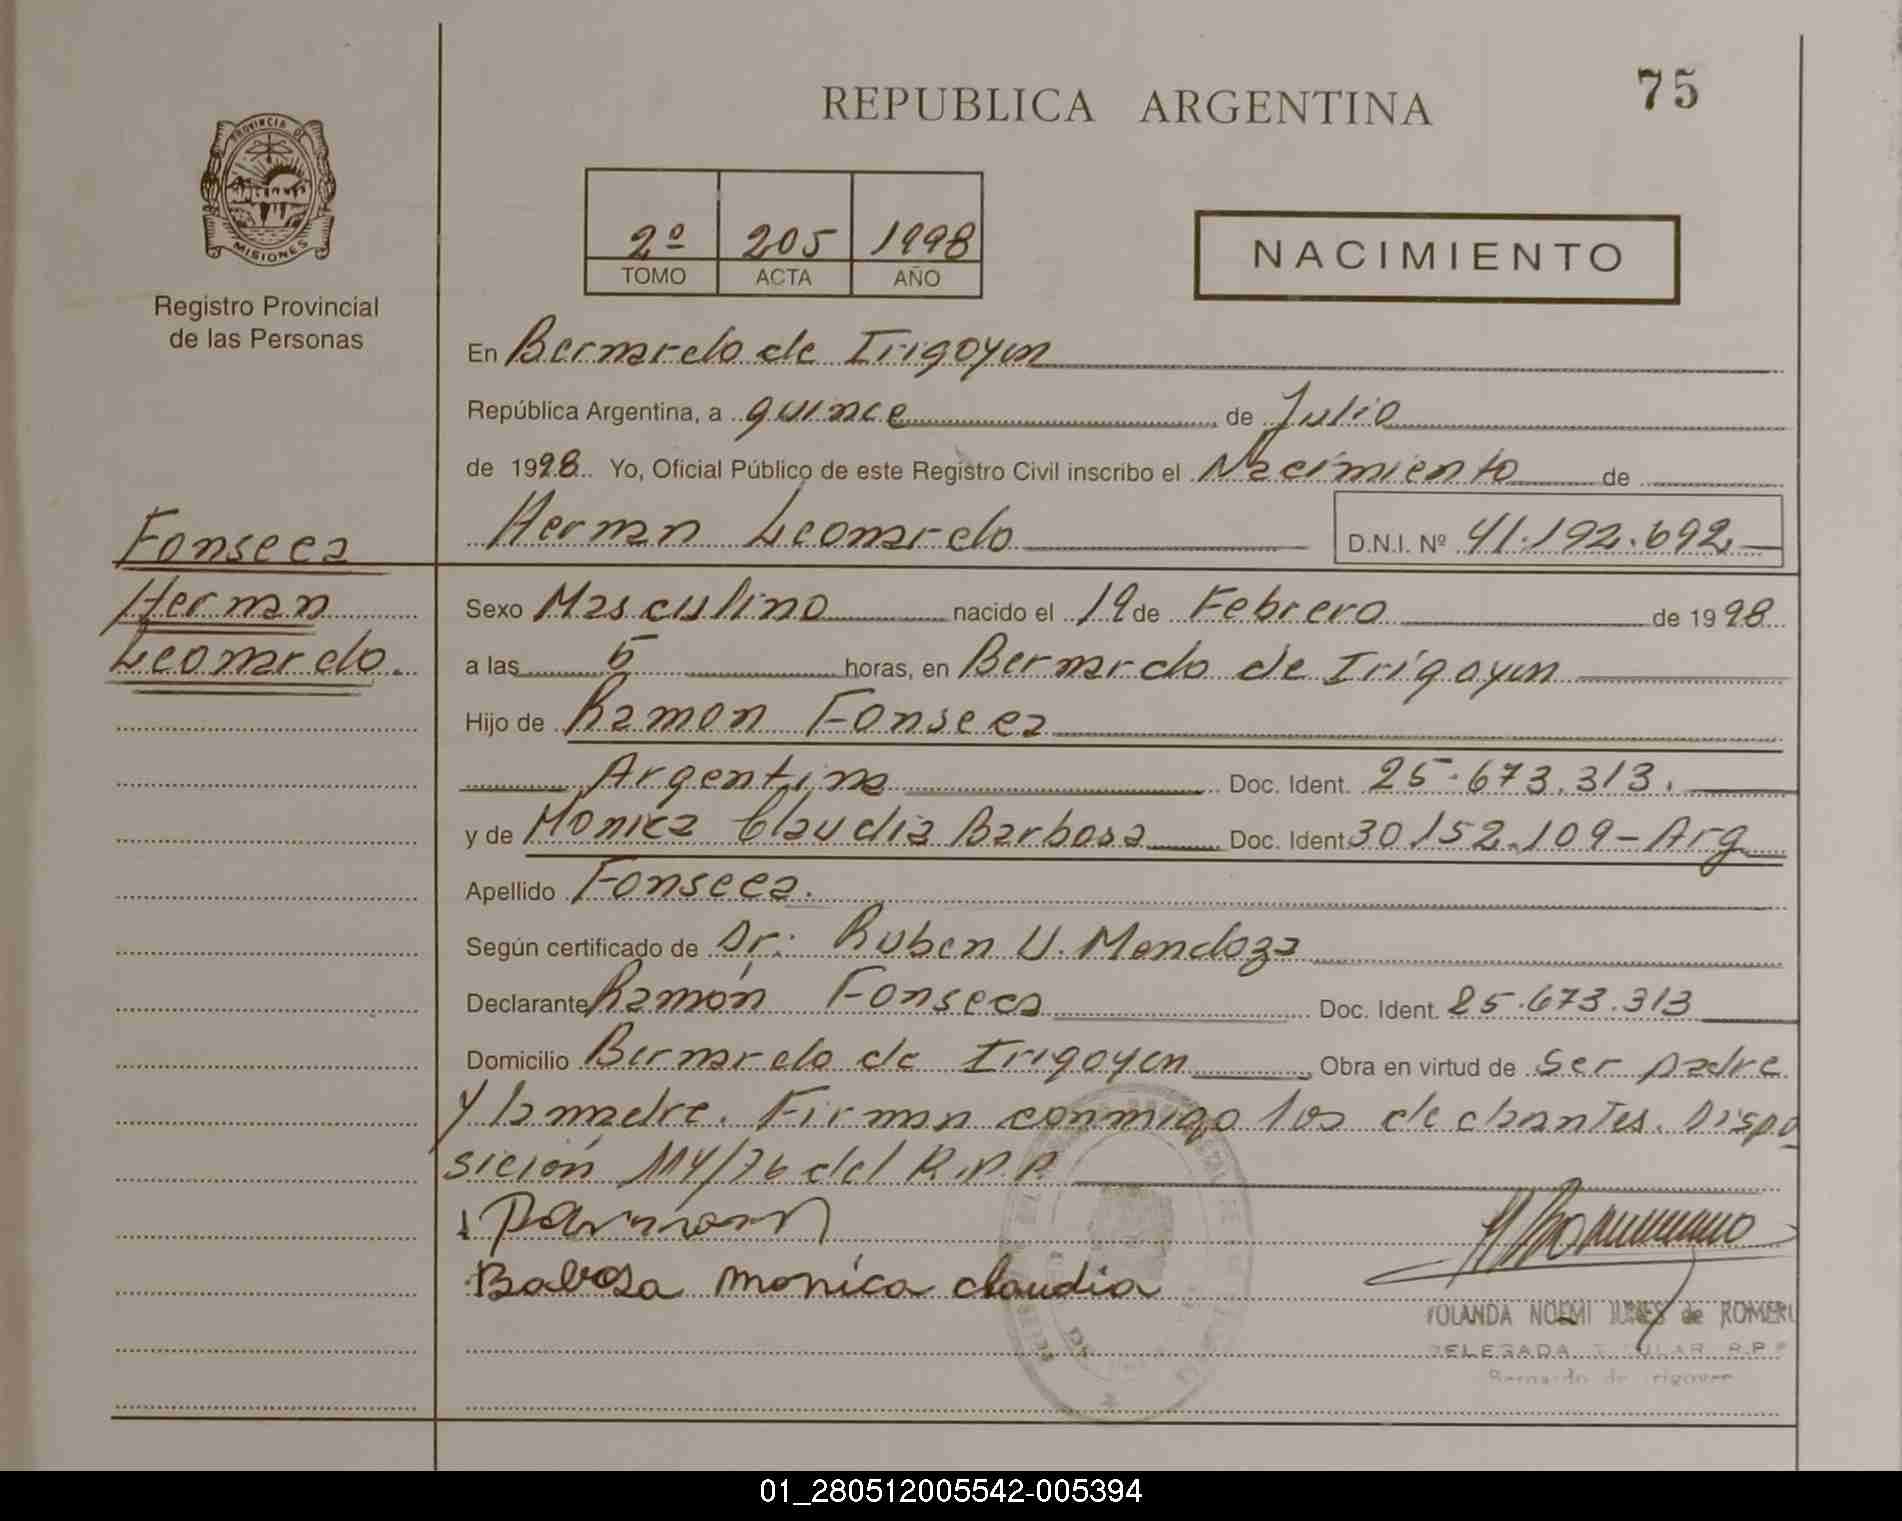 REPUBLICA ARGENTINA
75
PROVINCIA DE
MISIONES
Registro Provincial
de las Personas
2º 205 1998
TOMO ACTA AÑO
NACIMIENTO
En Bernardo de Irigoyen
República Argentina, a quince de Julio
de 1998 Yo, Oficial Público de este Registro Civil inscribo el Nacimiento de
Hernan Leonardo D.N.I. Nº 41.192.692
Fonseca
Hernan
Leonardo.
Sexo Masculino nacido el 19 de Febrero de 1998
a las 5 horas, en Bernardo de Irigoyen
Hijo de Ramon Fonseca
Argentina Doc. Ident. 25.673.313.
y de Monica Claudia Barbosa Doc. Ident. 30.152.109 - Arg
Apellido Fonseca.
Según certificado de Dr. Ruben U. Mendoza
Declarante Ramón Fonseca Doc. Ident. 25.673.313
Domicilio Bernardo de Irigoyen Obra en virtud de ser padre
y la madre. Firman conmigo los declarantes. Dispo
sición 114/76 del R.P.P.
Babosa monica claudia
YOLANDA NOEMI de ROMERO
DELEGADA TITULAR R.P.P
Bernardo de Irigoyen
01_280512005542-005394